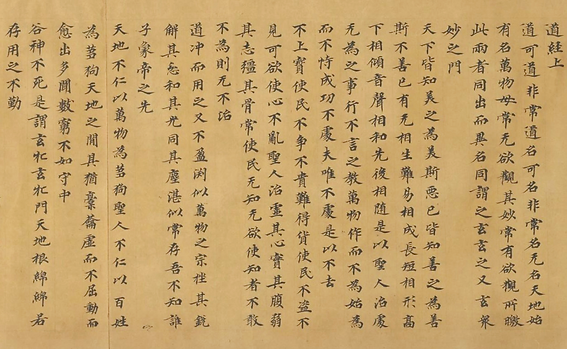 道經上
道可道非常道名可名非常名无名天地始
有名萬物母常无欲觀其妙常有欲觀所曒
此兩者同出而異名同謂之玄玄之又玄衆
妙之門
天下皆知美之為美斯惡已皆知善之為善
斯不善已有无相生難易相成長短相形高
下相傾音聲相和先後相随是以聖人治處
无為之事行不言之教萬物作而不為始為
而不恃成功不處夫唯不處是以不去
不上賢使民不争不貴難得貨使民不盗不
見可欲使心不亂聖人治虛其心實其腹弱
其志彊其骨常使民无知无欲使知者不敢
不為則无不治
道冲而用之又不盈渊似萬物之宗挫其銳
解其忿和其光同其塵湛似常存吾不知誰
子象帝之先
天地不仁以萬物為芻狗聖人不仁以百姓
為芻狗天地之閒其猶橐籥虛而不屈動而
愈出多聞數窮不如守中
谷神不死是謂玄牝玄牝門天地根綿綿若
存用之不勤